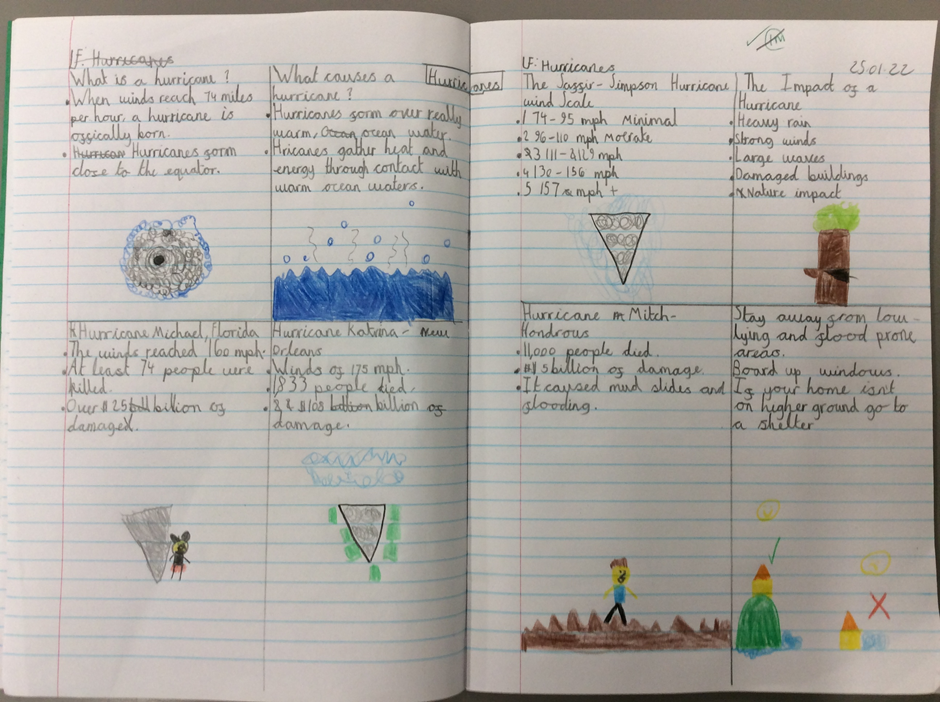 LF: Hurricanes
What is a hurricane?
• When winds reach 74 miles
per hour, a hurricane is
offically born.
• Hurrican Hurricanes form
close to the equator.
What causes a
hurricane?
Hurricanes
• Hurricanes form over really
warm, Ocean ocean water.
• Hricanes gather heat and
energy through contact with
warm ocean waters.
Hurricane Michael, Florida
• The winds reached 160 mph.
• At least 74 people were
killed.
• Over $25 billion of
damaged.
Hurricane Katrina - New
Orleans
• Winds of 175 mph.
• 1,833 people died.
• billion of
damage.
LF: Hurricanes
25.01.22
The Saffir-Simpson Hurricane
wind Scale
• 1 74-95 mph Minimal
• 2 96-110 mph Motrate
• 3 111-129 mph
• 4 130-156 mph
• 5 157 mph +
The Impact of a
Hurricane
• Heavy rain
• Strong winds
• Large waves
• Damaged buildings
• Nature impact
Hurricane Mitch-
Hondrous
• 11,000 people died.
• $5 billion of damage.
• It caused mud slides and
flooding.
Stay away from low-
lying and flood prone
areas.
Board up windows.
If your home isn't
on higher ground go to
a shelter